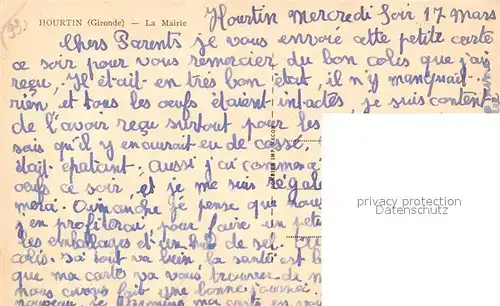 HOURTIN (Gironde) — La Mairie
Hourtin mercredi Soir 17 Mars
Chers Parents je vous envoie cette petite carte
ce soir pour vous remercier du bon colis que j'ai
reçu, Il était en très bon état, il n'y manquait
rien et tous les oeufs étaient intactes, je suis content
de l'avoir reçu surtout pour les
sois qu'il y en aurait eu de cassé,
était épatant. Aussi j'ai commencé
oeufs ce soir, et je me suis régalé
merci. Dimanche je pense que nous
j'en profiterai pour faire un peti
les emballages et un de sel.
colis. tout va bien la santé est b
que ma carte va vous trouver de m
nous avons fait une bonne
nouveau je termine ma carte en vous
privacy protection
Datenschutz